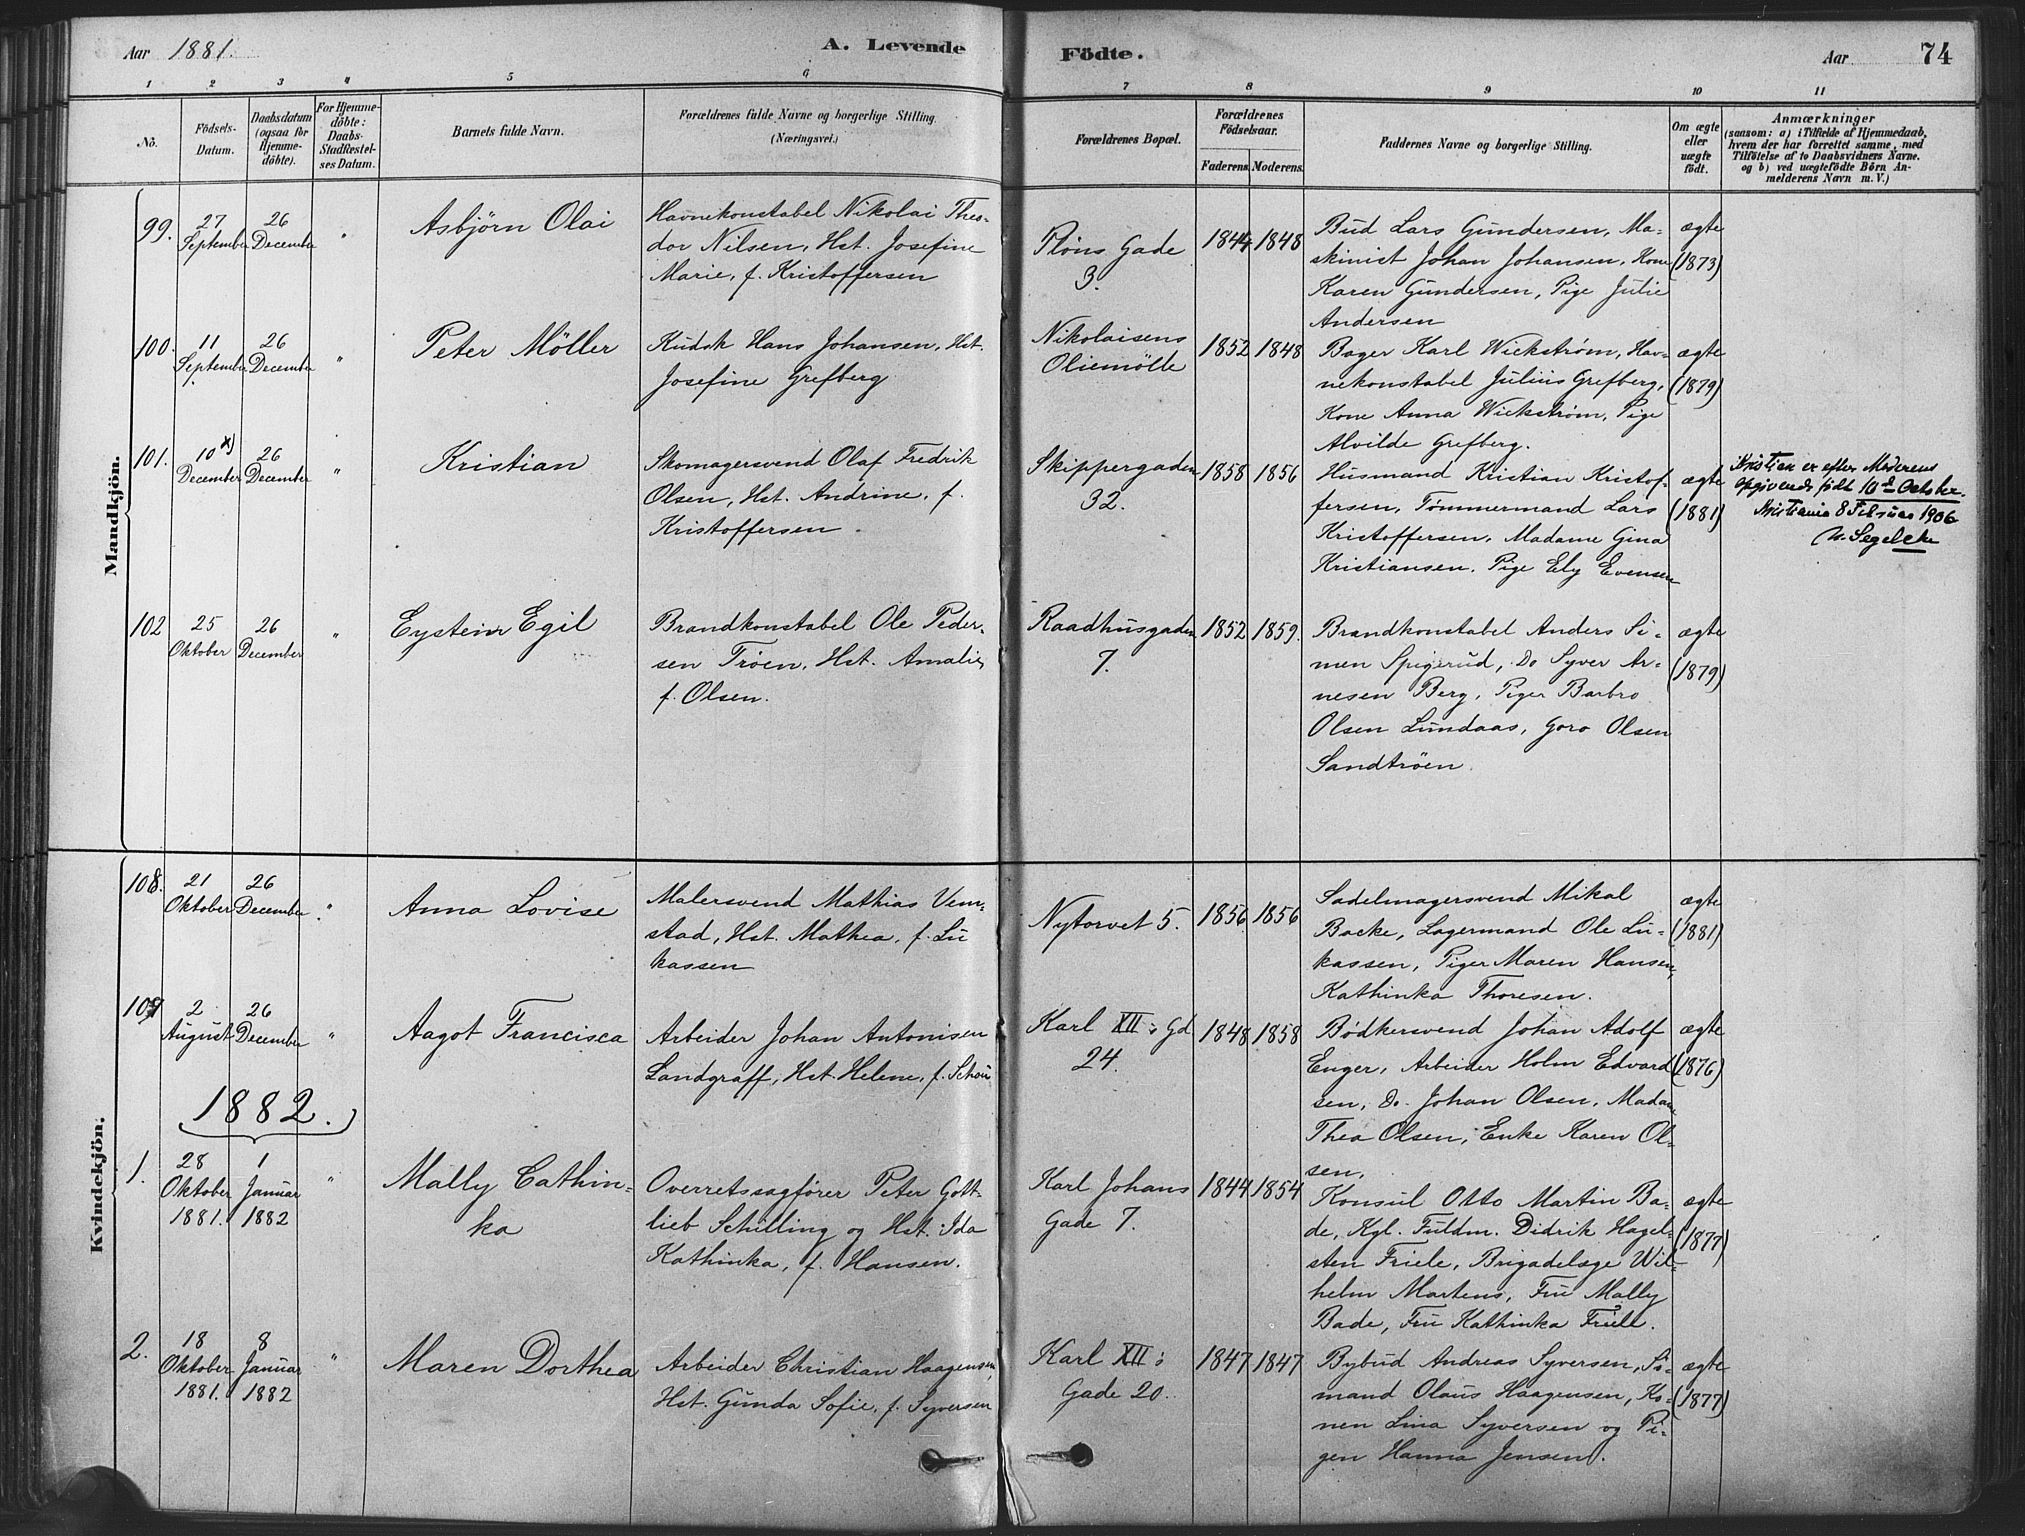 Aar 1881.
A. Levende
Födte.
Aar
74
1 2 3 4 5 6 7 8 9 10 11
No.
Födsels-
Datum.
Daabsdatum
(ogsaa for
Hjemme-
döbte).
For Hjemme-
döbte:
Daabs-
Stadfæstel-
ses Datum.
Barnets fulde Navn.
Forældrenes fulde Navne og borgerlige Stilling.
(Næringsvei.)
Forældrenes Bopæl.
Forældrenes
Födselsaar.
Faderens. Moderens.
Faddernes Navne og borgerlige Stilling.
Om ægte
eller
uægte
födt.
Anmærkninger
(saasom: a) i Tilfælde af Hjemmedaab,
hvem der har forrettet samme, med
Tilföielse af to Daabsvidners Navne.
og b) ved uægtefödte Börn An-
melderens Navn m.V.)
Mandkjön.
99.
27
September
26
December
"
Asbjörn Olai
Havnekonstabel Nikolai Theo-
dor Nilsen, Hst. Josefine
Marie, f. Kristoffersen
Pløns Gade
3.
1844 1848
Bud Lars Gundersen, Ma-
skinist Johan Johansen, Kone
Karen Gundersen, Pige Julie
Andersen
ægte
(1873)
100.
11
September
26
December
"
Peter Möller
Kudsk Hans Johansen, Hst.
Josefine Grefberg
Nikolaisens
Oliemölle
1852 1848
Bager Karl Wickstrøm, Hav-
nekonstabel Julius Grefberg,
Kone Anna Wickstrøm, Pige
Alvilde Grefberg.
ægte
(1879)
101.
10 x)
December
26
December
"
Kristian
Skomagersvend Olaf Fredrik
Olsen, Hst. Andrine, f.
Kristoffersen
Skippergaden
32.
1858 1856
Husmand Kristian Kristof-
fersen, Tømmermand Lars
Kristoffersen, Madame Gina
Kristiansen, Pige Ely Evensen
ægte
(1881)
Kristian er efter Moderens
Opgivende født 10d October.
Kristiania 8 Februar 1906
N. Segelcke
102
25
Oktober
26
December
"
Eystein Egil
Brandkonstabel Ole Peder-
sen Trøen, Hst. Amalie,
f. Olsen.
Raadhusgaden
7.
1852 1859.
Brandkonstabel Anders Si-
men Spigerud, Do Syver Ar-
nesen Berg, Piger Barbro
Olsen Lundaas, Goro Olsen
Sandtröen
ægte
(1879)
Kvindekjön.
108.
21
Oktober
26
December
"
Anna Lovise
Malersvend Mathias Vem-
stad, Hst. Mathea, f. Lu
kassen
Nytorvet 5.
1856 1856
Sadelmagersvend Mikal
Backe, Lagermand Ole Lu-
kassen, Piger Maren Hansen,
Kathinka Thoresen.
ægte
(1881)
109
2
August
26
December
"
Aagot Francisca
Arbeider Johan Antonisen
Landgraff, Hst. Helene, f. Schou
Karl XII s Gd
24.
1848 1858
Bødkersvend Johan Adolf
Enger, Arbeider Holm Edvard
sen, Do. Johan Olsen, Madam
Thea Olsen, Enke Karen Ol-
sen.
ægte
(1876)
1882.
1.
28
Oktober
1881.
1
Januar
1882
"
Mally Cathin-
ka
Overretssagfører Peter Gott-
lieb Schilling og Hst. Ida
Kathinka, f. Hansen.
Karl Johans
Gade 7.
1844 1854
Konsul Otto Martin Ba-
de, Kgl. Fuldm. Didrik Hagel-
sten Friele, Brigadelæge Wil-
helm Martens, Fru Mally
Bade, Fru Kathinka Friele.
ægte
(1877)
2.
18
Oktober
1881.
8
Januar
1882
"
Maren Dorthea
Arbeider Christian Haagensen,
Hst. Gunda Sofie, f. Syversen
Karl XII s
Gade 20.
1847 1847
Bybud Andreas Syversen, Sö-
mand Olaus Haagensen, Ko-
nen Lina Syversen og Pi-
gen Hanna Jensen.
ægte
(1877)